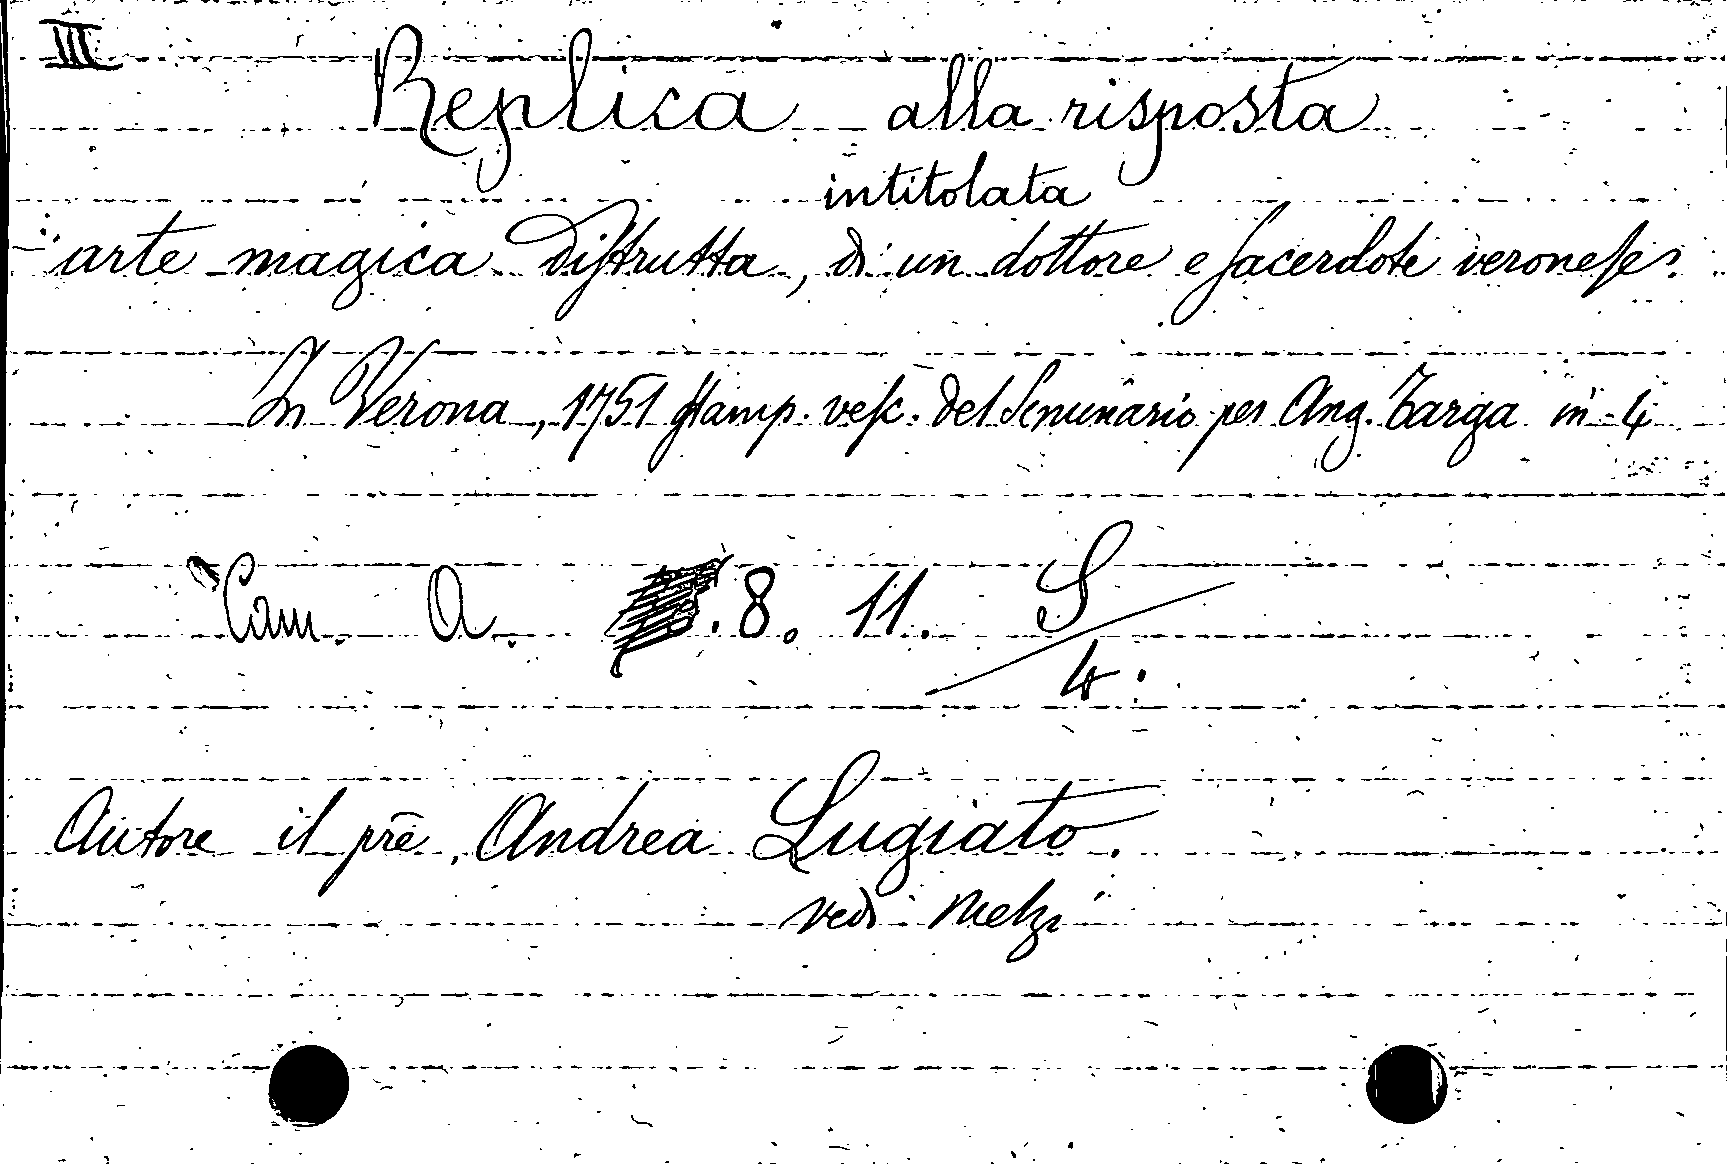 III
Replica alla risposta
intitolata
arte magica distrutta, di un dottore e sacerdote veronese.
In Verona, 1751 stamp. vesc. del Seminario per Ang. Targa in 4
Cam. A. .8. 11. S/4.
Autore il prē. Andrea Lugiato.
vedi Melzi